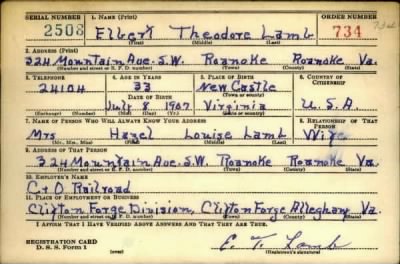 SERIAL NUMBER 1. NAME (Print) ORDER NUMBER
2503 Elbert Theodore Lamb 734 734
(First) (Middle) (Last)
2. ADDRESS (Print)
324 Mountain Ave. S.W. Roanoke Roanoke Va.
(Number and street or R. F. D. number) (Town) (County) (State)
3. TELEPHONE 4. AGE IN YEARS 5. PLACE OF BIRTH 6. COUNTRY OF CITIZENSHIP
24104 33 New Castle
DATE OF BIRTH (Town or county)
July 8 1907 Virginia U.S.A.
(Mo.) (Day) (Yr.) (State or country)
7. NAME OF PERSON WHO WILL ALWAYS KNOW YOUR ADDRESS 8. RELATIONSHIP OF THAT PERSON
Mrs Hazel Louise Lamb Wife
(Mr., Mrs., Miss) (First) (Middle) (Last)
9. ADDRESS OF THAT PERSON
324 Mountain Ave. S.W. Roanoke Roanoke Va.
(Number and street or R. F. D. number) (Town) (County) (State)
10. EMPLOYER'S NAME
C+O Railroad
11. PLACE OF EMPLOYMENT OR BUSINESS
Clifton Forge Division, Clifton Forge Alleghany Va.
(Number and street or R. F. D. number) (Town) (County) (State)
I AFFIRM THAT I HAVE VERIFIED ABOVE ANSWERS AND THAT THEY ARE TRUE.
REGISTRATION CARD
D. S. S. Form 1 (over) E. T. Lamb
(Registrant's signature)